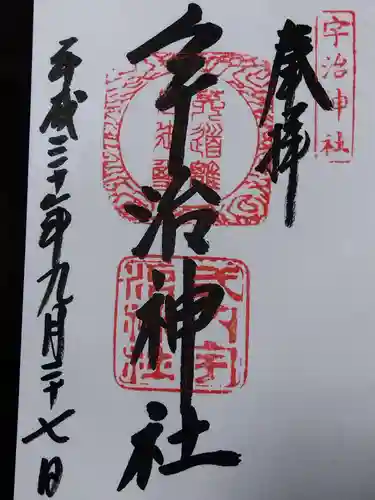 宇治神社
奉拝
宇治神社
平成三十年九月二十七日